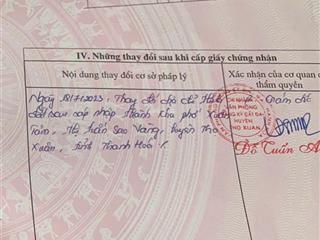 IV. Những thay đổi sau khi cấp giấy chứng nhận
Nội dung thay đổi cơ sở pháp lý
Xác nhận của cơ quan có
thẩm quyền
Ngày 18/7/2023, Thay đổi địa chỉ
đất sau sáp nhập thành Khu phố Xuân
Tâm, thị trấn Sao Vàng, huyện Thọ
Xuân, tỉnh Thanh Hóa
Giám đốc
VĂN PHÒNG
HUYỆN
THỌ XUÂN
Đỗ Tuấn